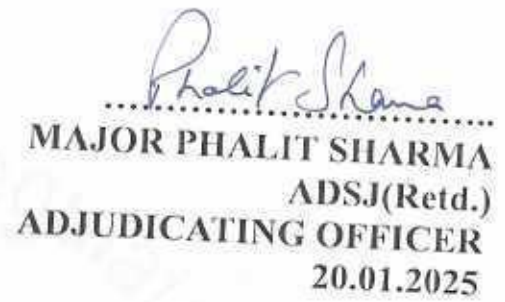 Phalit Sharma
....................................
MAJOR PHALIT SHARMA
ADSJ(Retd.)
ADJUDICATING OFFICER
20.01.2025